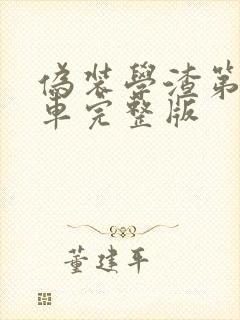 偽裝學渣第
車完整版
董建平